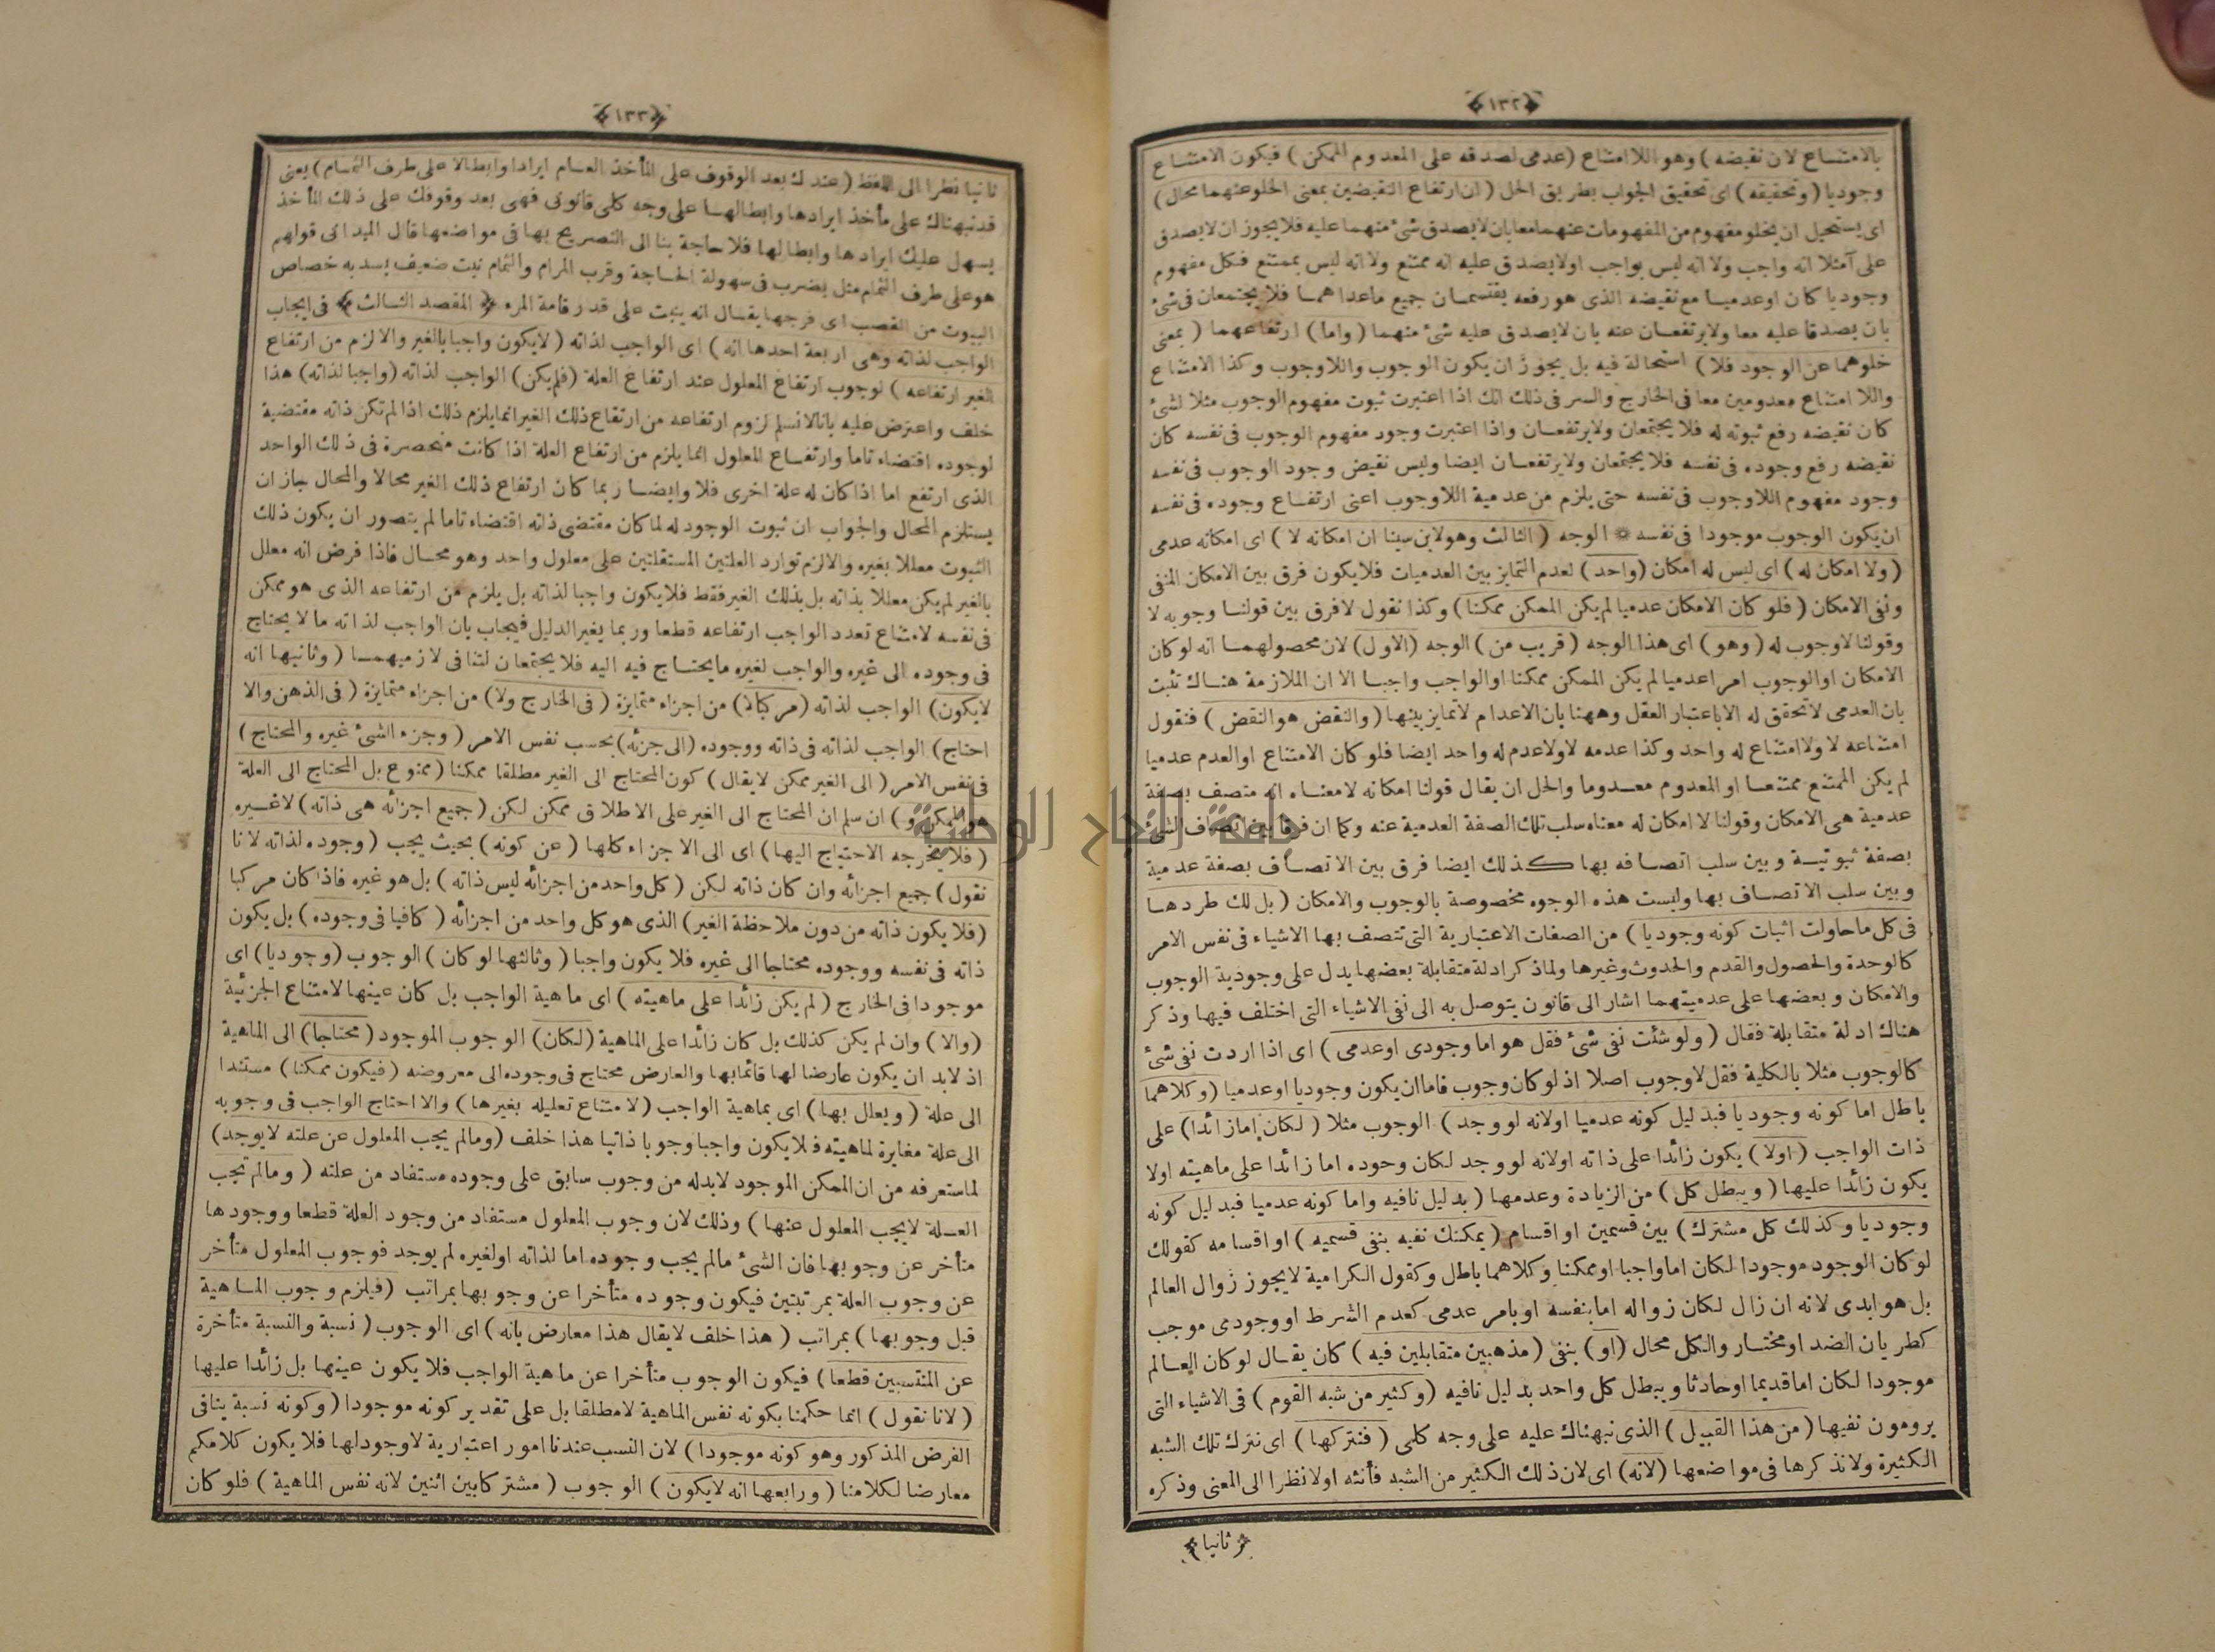 ﴿١٣٢﴾
بالامتناع لان نقيضه) وهو اللا امتناع (عدمى لصدقه على المعدوم الممكن) فيكون الامتناع
وجوديا (وتحقيقه) اى تحقيق الجواب بطريق الحل (ان ارتفاع النقيضين بمعنى الخلو عنهما محال)
اى يستحيل ان يخلو مفهوم من المفهومات عنهما معا بان لا يصدق شئ منهما عليه فلا يجوز ان لا يصدق
على آ مثلا انه واجب ولا انه ليس بواجب اولا يصدق عليه انه ممتنع ولا انه ليس بممتنع فكل مفهوم
وجوديا كان او عدميا مع نقيضه الذى هو رفعه يقتسمان جميع ماعداهما فلا يجتمعان فى شئ
بان يصدقا عليه معا ولا يرتفعان عنه بان لا يصدق عليه شئ منهما (واما) ارتفاعهما (بمعنى
خلوهما عن الوجود فلا) استحالة فيه بل يجوز ان يكون الوجوب واللاوجوب وكذا الامتناع
واللا امتناع معدومين معا فى الخارج والسر فى ذلك انك اذا اعتبرت ثبوت مفهوم الوجوب مثلا لشئ
كان نقيضه رفع ثبوته له فلا يجتمعان ولا يرتفعان واذا اعتبرت وجود مفهوم الوجوب فى نفسه كان
نقيضه رفع وجوده فى نفسه فلا يجتمعان ولا يرتفعان ايضا وليس نقيض وجود الوجوب فى نفسه
وجود مفهوم اللاوجوب فى نفسه حتى يلزم من عدمية اللاوجوب اعنى ارتفاع وجوده فى نفسه
ان يكون الوجوب موجودا فى نفسه * الوجه (الثالث وهو لابن سينا ان امكانه لا) اى امكانه عدمى
(ولا امكان له) اى ليس له امكان (واحد) لعدم التمايز بين العدميات فلا يكون فرق بين الامكان المنفى
ونفى الامكان (فلو كان الامكان عدميا لم يكن الممكن ممكنا) وكذا نقول لا فرق بين قولنا وجوبه لا
وقولنا لاوجوب له (وهو) اى هذا الوجه (قريب من) الوجه (الاول) لان محصولهما انه لو كان
الامكان او الوجوب امرا عدميا لم يكن الممكن ممكنا او الواجب واجبا الا ان الملازمة هناك تثبت
بان العدمى لا تحقق له الا باعتبار العقل وههنا بان الاعدام لا تمايز بينها (والنقض هو النقض) فنقول
امتناعه لا ولا امتناع له واحد وكذا عدمه لا ولا عدم له واحد ايضا فلو كان الامتناع او العدم عدميا
لم يكن الممتنع ممتنعا او المعدوم معدوما والحل ان يقال قولنا امكانه لا معناه انه متصف بصفة
عدمية هى الامكان وقولنا لا امكان له معناه سلب تلك الصفة العدمية عنه وكما ان فرقا بين اتصاف الشئ
بصفة ثبوتية وبين سلب اتصافه بها كذلك ايضا فرق بين الاتصاف بصفة عدمية
وبين سلب الاتصاف بها وليست هذه الوجوه مخصوصة بالوجوب والامكان (بل لك طردها
فى كل ما حاولت اثبات كونه وجوديا) من الصفات الاعتبارية التى تتصف بها الاشياء فى نفس الامر
كالوحدة والحصول والقدم والحدوث وغيرها ولما ذكر ادلة متقابلة بعضها يدل على وجودية الوجوب
والامكان وبعضها على عدميتهما اشار الى قانون يتوصل به الى نفى الاشياء التى اختلف فيها وذكر
هناك ادلة متقابلة فقال (ولو شئت نفى شئ فقل هو اما وجودى او عدمى) اى اذا اردت نفى شئ
كالوجوب مثلا بالكلية فقل لاوجوب اصلا اذ لو كان وجوب فاما ان يكون وجوديا او عدميا (وكلاهما
باطل اما كونه وجوديا فبدليل كونه عدميا اولانه لو وجد) الوجوب مثلا (لكان اما زائدا) على
ذات الواجب (اولا) يكون زائدا على ذاته اولانه لو وجد لكان وجوده اما زائدا على ماهيته اولا
يكون زائدا عليها (ويبطل كل) من الزيادة وعدمها (بدليل نافيه واما كونه عدميا فبدليل كونه
وجوديا وكذلك كل مشترك) بين قسمين او اقسام (يمكنك نفيه بنفى قسميه) او اقسامه كقولك
لو كان الوجود موجودا لكان اما واجبا او ممكنا وكلاهما باطل وكقول الكرامية لا يجوز زوال العالم
بل هو ابدى لانه ان زال لكان زواله اما بنفسه او بامر عدمى كعدم الشرط او وجودى موجب
كطريان الضد او مختار والكل محال (او) بنفى (مذهبين متقابلين فيه) كان يقال لو كان العالم
موجودا لكان اما قديما او حادثا ويبطل كل واحد بدليل نافيه (وكثير من شبه القوم) فى الاشياء التى
يرومون نفيها (من هذا القبيل) الذى نبهناك عليه على وجه كلى (فنتركها) اى نترك تلك الشبه
الكثيرة ولا نذكرها فى مواضعها (لانه) اى لان ذلك الكثير من الشبه فأنثه اولا نظرا الى المعنى وذكره
﴿ثانيا﴾
﴿١٣٣﴾
ثانيا نظرا الى اللفظ (عندك بعد الوقوف على المأخذ العام ايرادا وابطالا على طرف الثمام) يعنى
قد نبهناك على مأخذ ايرادها وابطالها على وجه كلى قانونى فهى بعد وقوفك على ذلك المأخذ
يسهل عليك ايرادها وابطالها فلا حاجة بنا الى التصريح بها فى مواضعها قال الميدانى قولهم
هو على طرف الثمام مثل يضرب فى سهولة الحاجة وقرب المرام والثمام نبت ضعيف يسد به خصاص
البيوت من القصب اى فرجها يقال انه ينبت على قدر قامة المرء ﴿المقصد الثالث﴾ فى ابحاث
الواجب لذاته وهى اربعة احدها انه) اى الواجب لذاته (لا يكون واجبا بالغير والا لزم من ارتفاع
الغير ارتفاعه) لوجوب ارتفاع المعلول عند ارتفاع العلة (فلم يكن) الواجب لذاته (واجبا لذاته) هذا
خلف واعترض عليه بانا لا نسلم لزوم ارتفاعه من ارتفاع ذلك الغير انما يلزم ذلك اذا لم تكن ذاته مقتضية
لوجوده اقتضاء تاما وارتفاع المعلول انما يلزم من ارتفاع العلة اذا كانت منحصرة فى ذلك الواحد
الذى ارتفع اما اذا كان له علة اخرى فلا وايضا ربما كان ارتفاع ذلك الغير محالا والمحال جاز ان
يستلزم المحال والجواب ان ثبوت الوجود له لما كان مقتضى ذاته اقتضاء تاما لم يتصور ان يكون ذلك
الثبوت معللا بغيره والا لزم توارد العلتين المستقلتين على معلول واحد وهو محال فاذا فرض انه معلل
بالغير لم يكن معللا بذاته بل بذلك الغير فقط فلا يكون واجبا لذاته بل يلزم من ارتفاعه الذى هو ممكن
فى نفسه لامتناع تعدد الواجب ارتفاعه قطعا وربما يغير الدليل فيجاب بان الواجب لذاته ما لا يحتاج
فى وجوده الى غيره والواجب لغيره ما يحتاج فيه اليه فلا يجتمعان لتنافى لازميهما (وثانيها انه
لا يكون) الواجب لذاته (مركبا لا) من اجزاء متمايزة (فى الخارج ولا) من اجزاء متمايزة (فى الذهن والا
احتاج) الواجب لذاته فى ذاته ووجوده (الى جزئه) بحسب نفس الامر (وجزء الشئ غيره والمحتاج)
فى نفس الامر (الى الغير ممكن لا يقال) كون المحتاج الى الغير مطلقا ممكنا (ممنوع بل المحتاج الى العلة
هو الممكن و) ان سلم ان المحتاج الى الغير على الاطلاق ممكن لكن (جميع اجزائه هى ذاته) لا غيره
(فلا يخرجه الاحتياج اليها) اى الى الاجزاء كلها (عن كونه) بحيث يجب (وجوده لذاته لانا
نقول) جميع اجزائه وان كان ذاته لكن (كل واحد من اجزائه ليس ذاته) بل هو غيره فاذا كان مركبا
(فلا يكون ذاته من دون ملاحظة الغير) الذى هو كل واحد من اجزائه (كافيا فى وجوده) بل يكون
ذاته فى نفسه ووجوده محتاجا الى غيره فلا يكون واجبا (وثالثها لو كان) الوجوب (وجوديا) اى
موجودا فى الخارج (لم يكن زائدا على ماهيته) اى ماهية الواجب بل كان عينها لامتناع الجزئية
(والا) وان لم يكن كذلك بل كان زائدا على الماهية (لكان) الوجوب الموجود (محتاجا) الى الماهية
اذ لابد ان يكون عارضا لها قائما بها والعارض محتاج فى وجوده الى معروضه (فيكون ممكنا) مستندا
الى علة (ويعلل بها) اى بماهية الواجب (لامتناع تعليله بغيرها) والا احتاج الواجب فى وجوبه
الى علة مغايرة لماهيته فلا يكون واجبا وجوبا ذاتيا هذا خلف (وما لم يجب المعلول عن علته لا يوجد)
لما ستعرفه من ان الممكن الموجود لابد له من وجوب سابق على وجوده مستفاد من علته (وما لم تجب
العلة لا يجب المعلول عنها) وذلك لان وجوب المعلول مستفاد من وجود العلة قطعا ووجودها
متأخر عن وجوبها فان الشئ ما لم يجب وجوده اما لذاته او لغيره لم يوجد فوجوب المعلول متأخر
عن وجوب العلة بمرتبتين فيكون وجوده متأخرا عن وجوبها بمراتب (فيلزم وجوب الماهية
قبل وجوبها) بمراتب (هذا خلف لا يقال هذا معارض بانه) اى الوجوب (نسبة والنسبة متأخرة
عن المنتسبين قطعا) فيكون الوجوب متأخرا عن ماهية الواجب فلا يكون عينها بل زائدا عليها
(لانا نقول) انما حكمنا بكونه نفس الماهية لا مطلقا بل على تقدير كونه موجودا (وكونه نسبة ينافى
الفرض المذكور وهو كونه موجودا) لان النسب عندنا امور اعتبارية لا وجود لها فلا يكون كلامكم
معارضا لكلامنا (ورابعها انه لا يكون) الوجوب (مشتركا بين اثنين لانه نفس الماهية) فلو كان
جامعة النجاح الوطنية